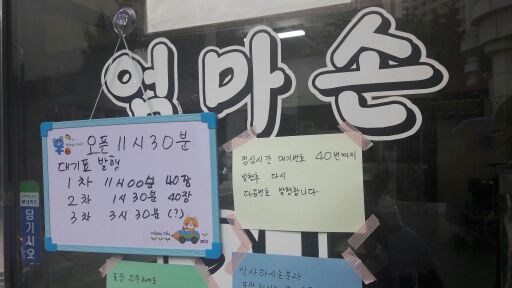 엄마손
오픈 11시30분
대기표 발행
1차 11시00분 40장
2차 1시30분 40장
3차 3시30분 (?)
점심시간 대기번호 40번까지
발행후 다시
다음번호 발행합니다
당기시오
포장 주문하셔도
식사하시는분과